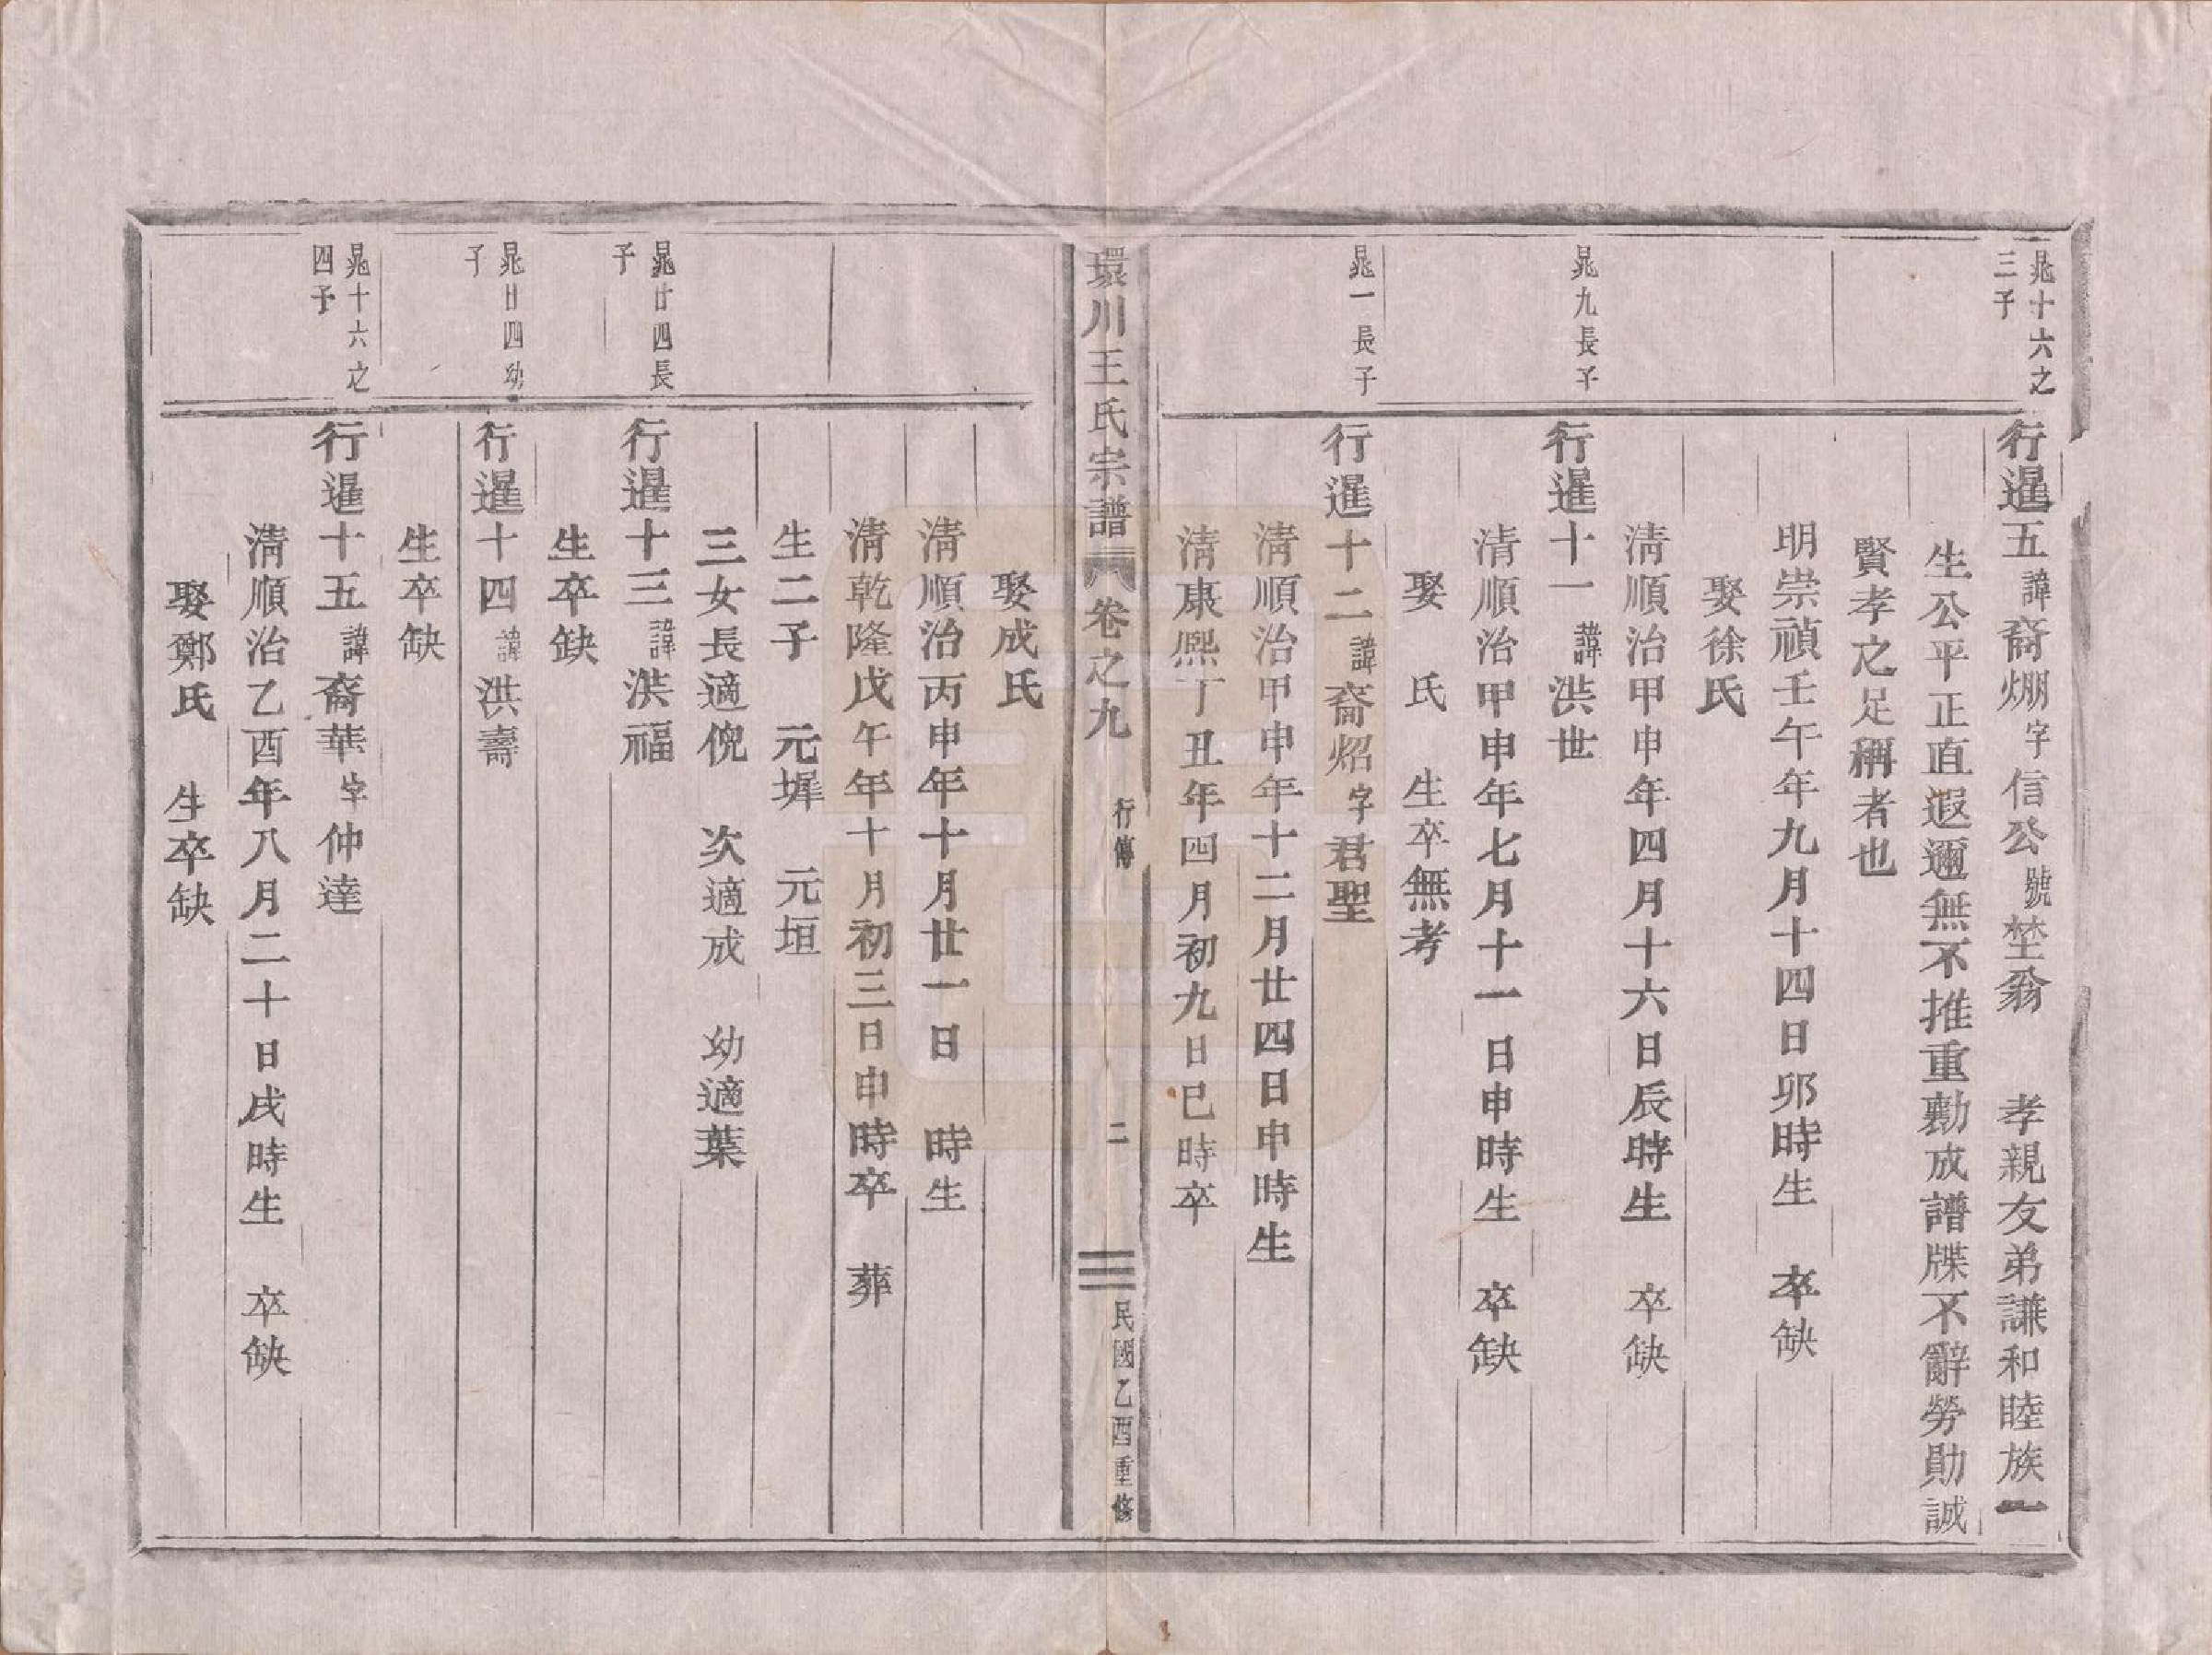 晁十六之
三子
行暹五諱裔焩字信公號埜翁　孝親友弟謙和睦族一
生公平正直遐邇無不推重勷成譜牒不辭勞勛誠
賢孝之足稱者也
明崇禎壬午年九月十四日卯時生　卒缺
娶徐氏
清順治甲申年四月十六日辰時生　卒缺
晁九長子
行暹十一諱洪世
清順治甲申年七月十一日申時生　卒缺
娶　氏　生卒無考
晁一長子
行暹十二諱裔炤字君聖
清順治甲申年十二月廿四日申時生
清康熙丁丑年四月初九日巳時卒
環川王氏宗譜　卷之九　行傳　二　民國乙酉重修
娶成氏
清順治丙申年十月廿一日　時生
清乾隆戊午年十月初三日申時卒　葬
生二子　元墀　元垣
三女長適倪　次適成　幼適葉
晁廿四長
子
行暹十三諱洪福
生卒缺
晁廿四幼
子
行暹十四諱洪壽
生卒缺
晁十六之
四子
行暹十五諱裔華字仲達
清順治乙酉年八月二十日戌時生　卒缺
娶鄭氏　生卒缺